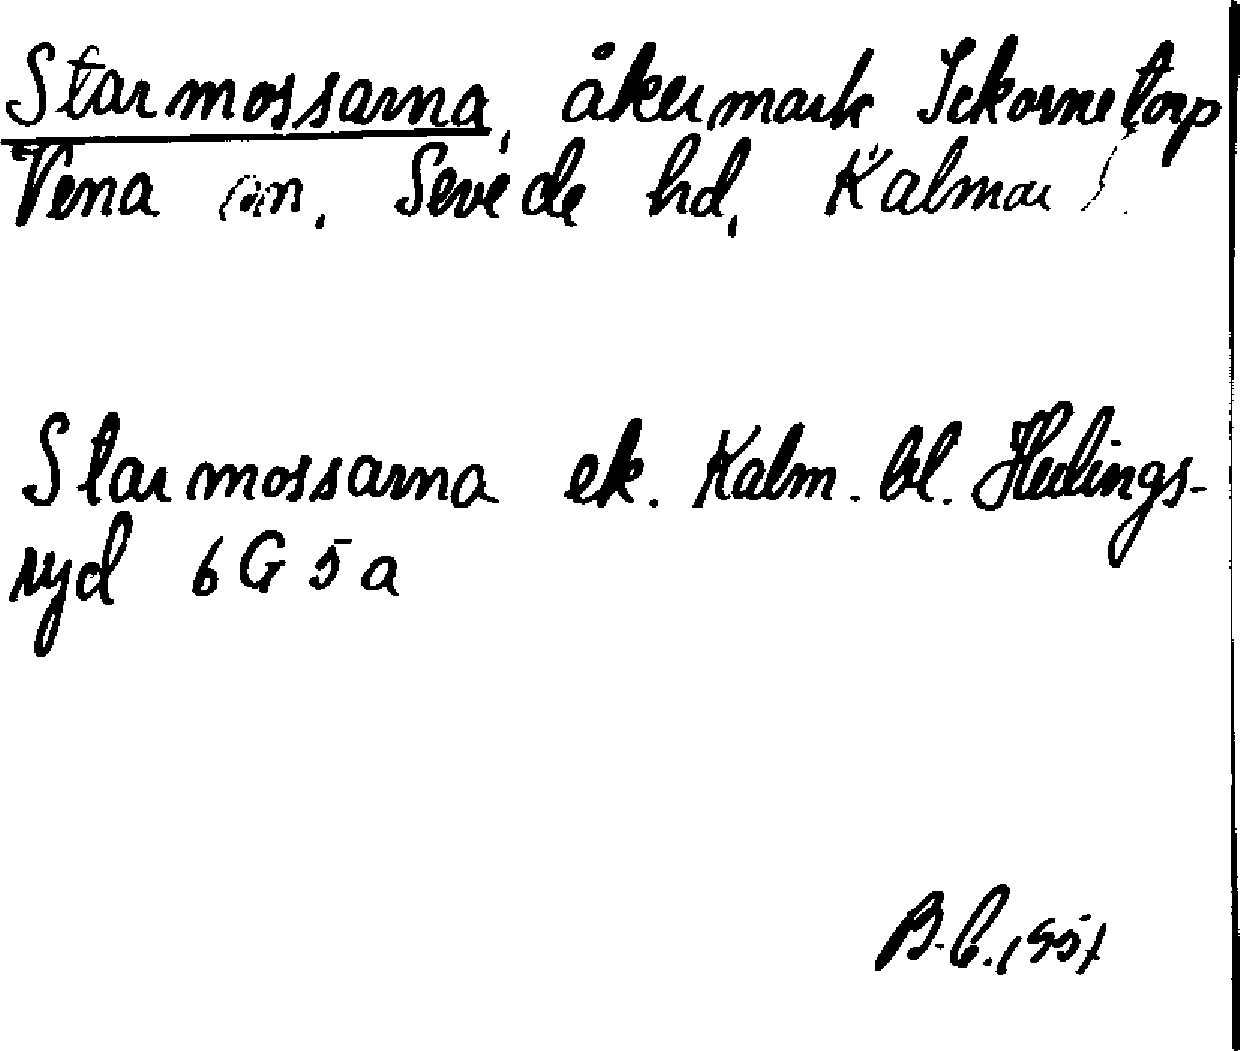 Starmossarna, åkermark Ickornetorp
Vena sn. Sevede hd, Kalmar l.
Starmossarna ek. Kalm. bl. Hedings-
ryd 6G5a